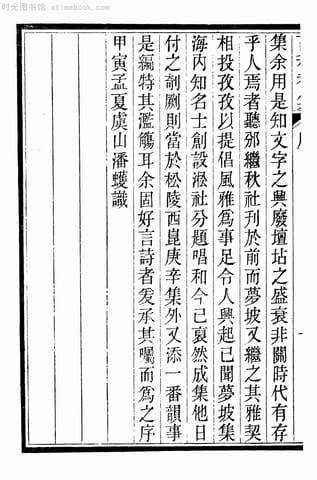 时光图书馆 - www.atimebook.com
集余用是知文字之興廢壇坫之盛衰非關時代有存
乎人焉者聽邠繼秋社刊於前而夢坡又繼之其雅契
相投孜孜以提倡風雅爲事足令人興起已聞夢坡集
海内知名士創設淞社分題唱和今已裒然成集他日
付之剞劂則當於松陵西崑庚辛集外又添一番韻事
是編特其濫觴耳余固好言詩者爰承其囑而爲之序
甲寅孟夏虞山潘蠖識